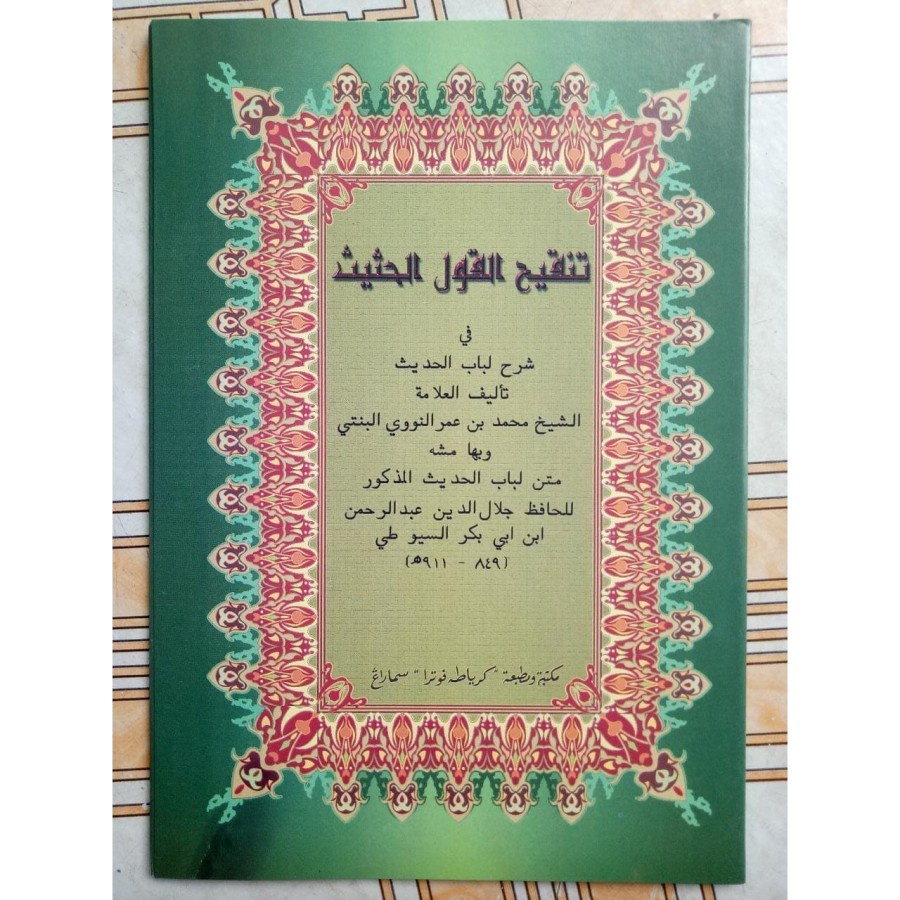 تنقيح القول الحثيث
في
شرح لباب الحديث
تأليف العلامة
الشيخ محمد بن عمر النووي البنتي
وبها مشه
متن لباب الحديث المذكور
للحافظ جلال الدين عبدالرحمن
ابن ابي بكر السيو طي
(٨٤٩ - ٩١١ه)
مكتبة ومطبعة "كرياطه فوترا" سماراڠ